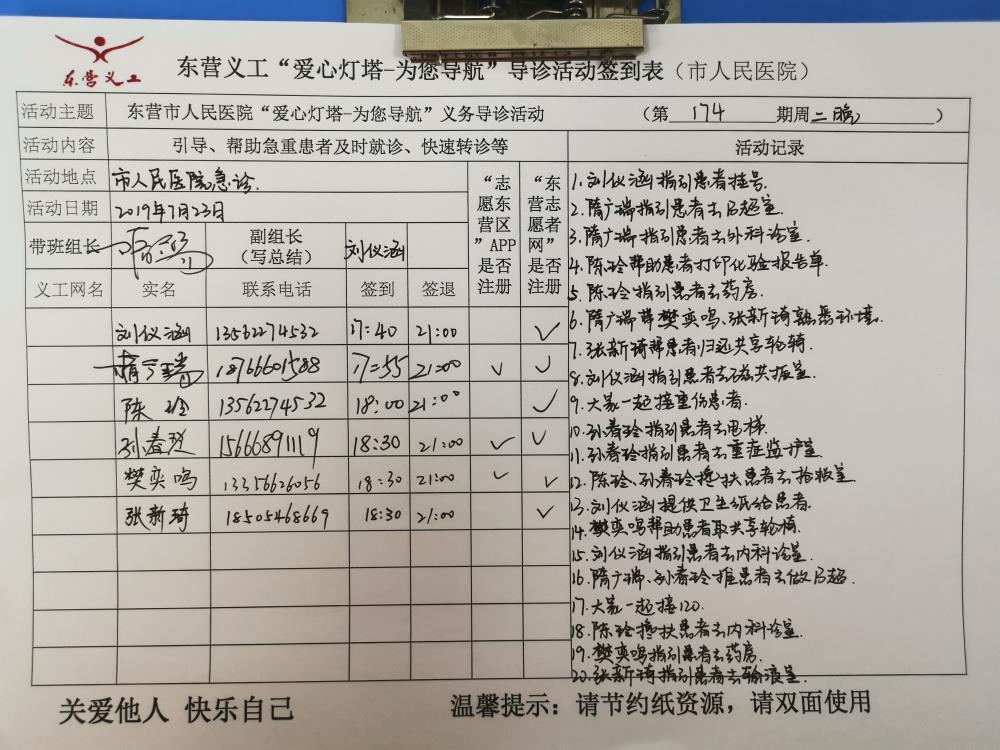 东营义工
东营义工“爱心灯塔-为您导航”导诊活动签到表（市人民医院）
活动主题 东营市人民医院“爱心灯塔-为您导航”义务导诊活动 （第 174 期周二晚 ）
活动内容 引导、帮助急重患者及时就诊、快速转诊等 活动记录
活动地点 市人民医院急诊.
活动日期 2019年7月23日
带班组长 副组长（写总结） 刘仪涵
“志愿东营区”APP是否注册
“东营志愿者网”是否注册
义工网名 实名 联系电话 签到 签退
刘仪涵 13562274532 17:40 21:00 ✓
隋广瑞 18766601588 17:55 21:00 ✓ ✓
陈玲 13562274532 18:00 21:00 ✓
孙春玲 15666891119 18:30 21:00 ✓ ✓
樊奕鸣 13356626056 18:30 21:00 ✓ ✓
张新琦 18505468669 18:30 21:00 ✓
1.刘仪涵指引患者挂号.
2.隋广瑞指引患者去B超室.
3.隋广瑞指引患者去外科诊室.
4.陈玲帮助患者打印化验报告单.
5.陈玲指引患者去药房.
6.隋广瑞带樊奕鸣、张新琦熟悉环境.
7.张新琦帮患者归还共享轮椅.
8.刘仪涵指引患者去磁共振室.
9.大家一起接重伤患者.
10.孙春玲指引患者去电梯.
11.孙春玲指引患者去重症监护室.
12.陈玲、孙春玲搀扶患者去抢救室.
13.刘仪涵提供卫生纸给患者.
14.樊奕鸣帮助患者取共享轮椅.
15.刘仪涵指引患者去内科诊室.
16.隋广瑞、孙春玲推患者去做B超.
17.大家一起接120.
18.陈玲搀扶患者去内科诊室.
19.樊奕鸣指引患者去药房.
20.张新琦指引患者去输液室.
关爱他人 快乐自己 温馨提示：请节约纸资源，请双面使用